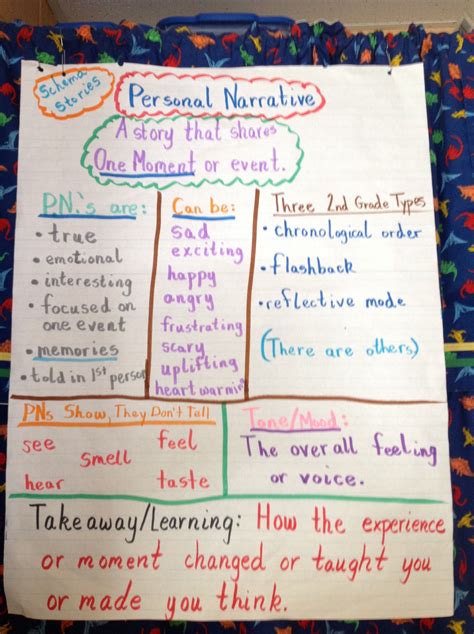 Schema
Stories
Personal Narrative
A story that shares
One Moment or event.
P.N.'s are:
• true
• emotional
• interesting
• focused on
one event
• memories
• told in 1st person
Can be:
sad
exciting
happy
angry
frustrating
scary
uplifting
heartwarming
Three 2nd Grade Types
• chronological order
• flashback
• reflective mode
(There are others)
PNs Show, They Don't Tell
see
feel
smell
hear
taste
Tone/Mood:
The overall feeling
or voice.
Takeaway/Learning: How the experience
or moment changed or taught you
or made you think.